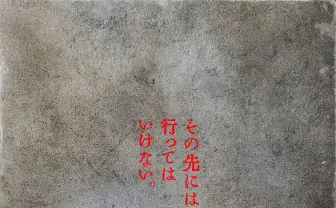 その先には
行っては
いけない。